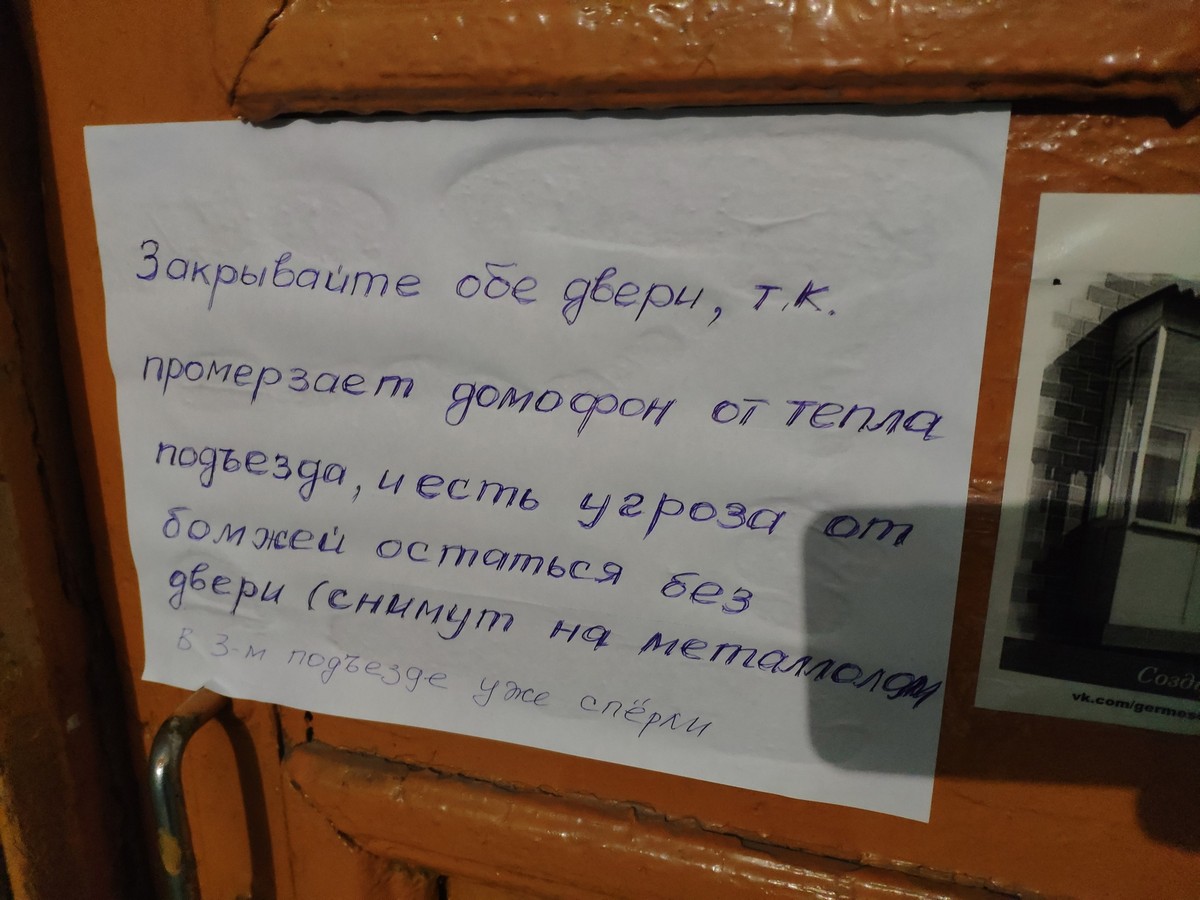 Закрывайте обе двери, т.к.
промерзает домофон от тепла
подъезда, и есть угроза от
бомжей остаться без
двери (снимут на металлолом
В 3-м подъезде уже спёрли
Созд
vk.com/germes